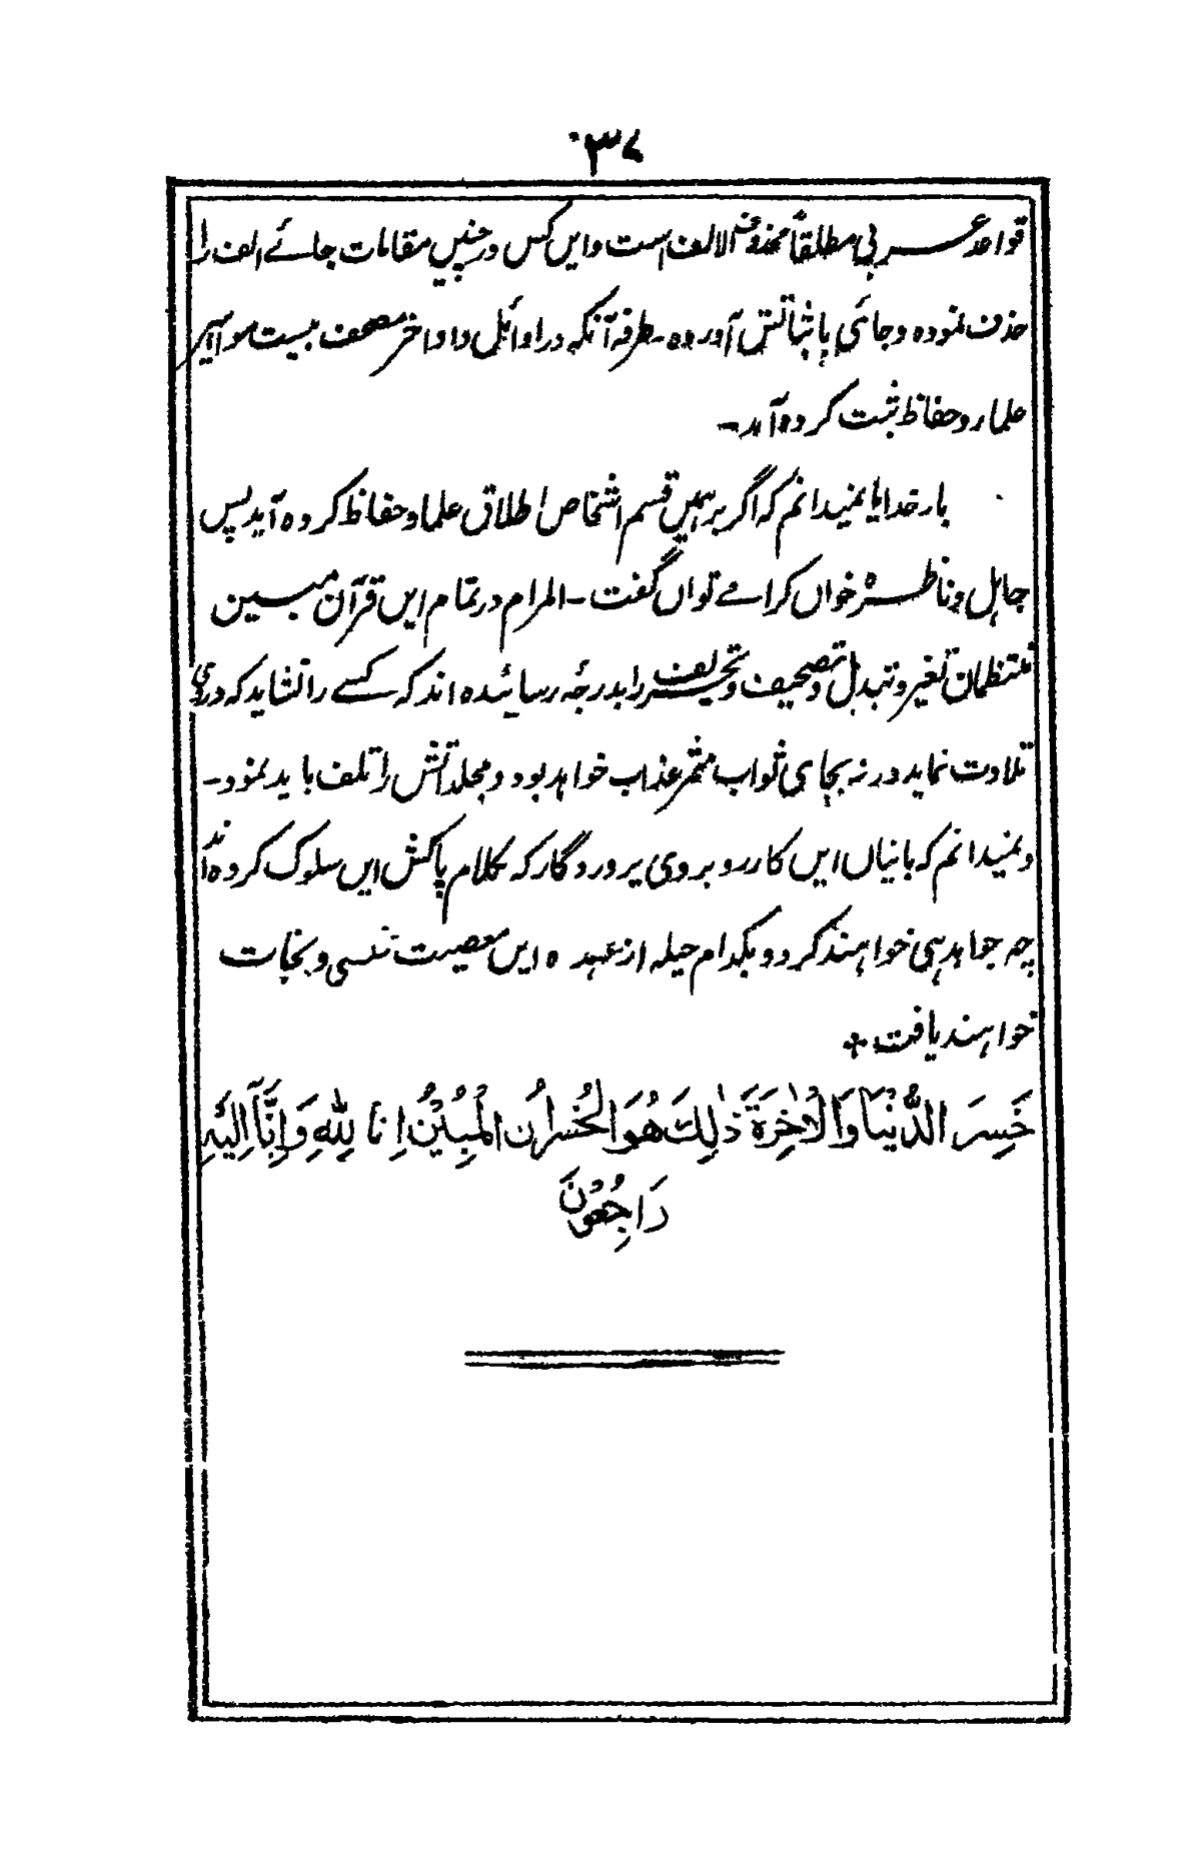 ۳۷
قواعد عربی مطلقاً محذوف الالف است و ایں کس در چنیں مقامات جائے الف را
حذف نموده و جائی باثباتش آورده۔ طرفه آنکه در اوائل و اواخر مصحف بیست مواہیر
علمار و حفاظ ثبت کرده آمد۔
بار خدایا نمیدانم که اگر بر ہمیں قسم اشخاص اطلاق علما و حفاظ کرده آید پس
جاہل و ناظره خواں کرا مے تواں گفت۔ المرام در تمام ایں قرآن مبین
منتظمان تغیر و تبدل و تصحیف و تحریف را بدرجۂ رسانیده اند که کسے را نشاید که دروی
تلاوت نماید ورنه بجای ثواب مثمر عذاب خواہد بود و مجلداتش را تلف باید نمود۔
و نمیدانم که بانیاں ایں کار رو بروی پروردگار که کلام پاکش ایں سلوک کرده اند
چه جوابدہی خواہند کرد و بکدام حیله از عہده ایں معصیت و نجات
خواہند یافت +
خَسِرَ الدُّنْيَا وَالْاٰخِرَةَ ذٰلِكَ هُوَ الْخُسْرَان الْمُبِيْنُ اِنَا لِلّٰهِ وَاِنَّآ اِلَيْهِ
رَاجِعُوْنَ